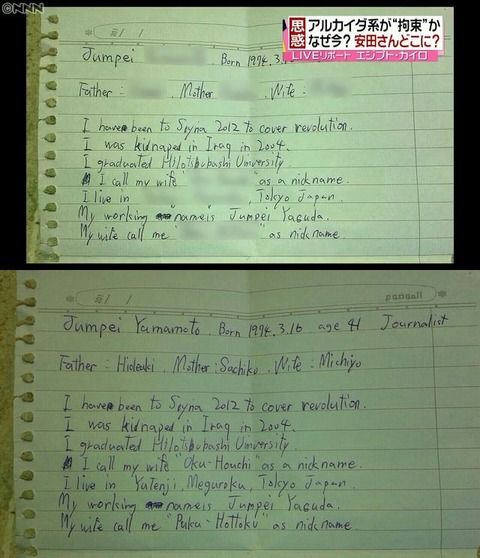 ©NNN
思惑
アルカイダ系が“拘束”か
なぜ今？安田さんどこに？
LIVEリポート エジプト・カイロ
Jumpei Born 1974.3.16
Father : , Mother , Wife :
I have been to Syria 2012 to cover revolution.
I was kidnaped in Iraq in 2004.
I graduated Hitotsubashi University.
I call my wife " " as a nickname.
I live in , Tokyo Japan.
My working "name is Jumpei Yasuda.
My wife call me " " as nickname.
Jumpei Yamamoto, Born 1974.3.16 age 41 Journalist
Father : Hideaki, Mother : Sachiko, Wife : Michiyo
I have been to Syria 2012 to cover revolution.
I was kidnaped in Iraq in 2004.
I graduated Hitotsubashi University.
I call my wife "Oku-Houchi" as a nickname.
I live in Yutenji, Meguroku, Tokyo Japan.
My working name is Jumpei Yasuda.
My wife call me "Puku-Hottoku" as nickname.